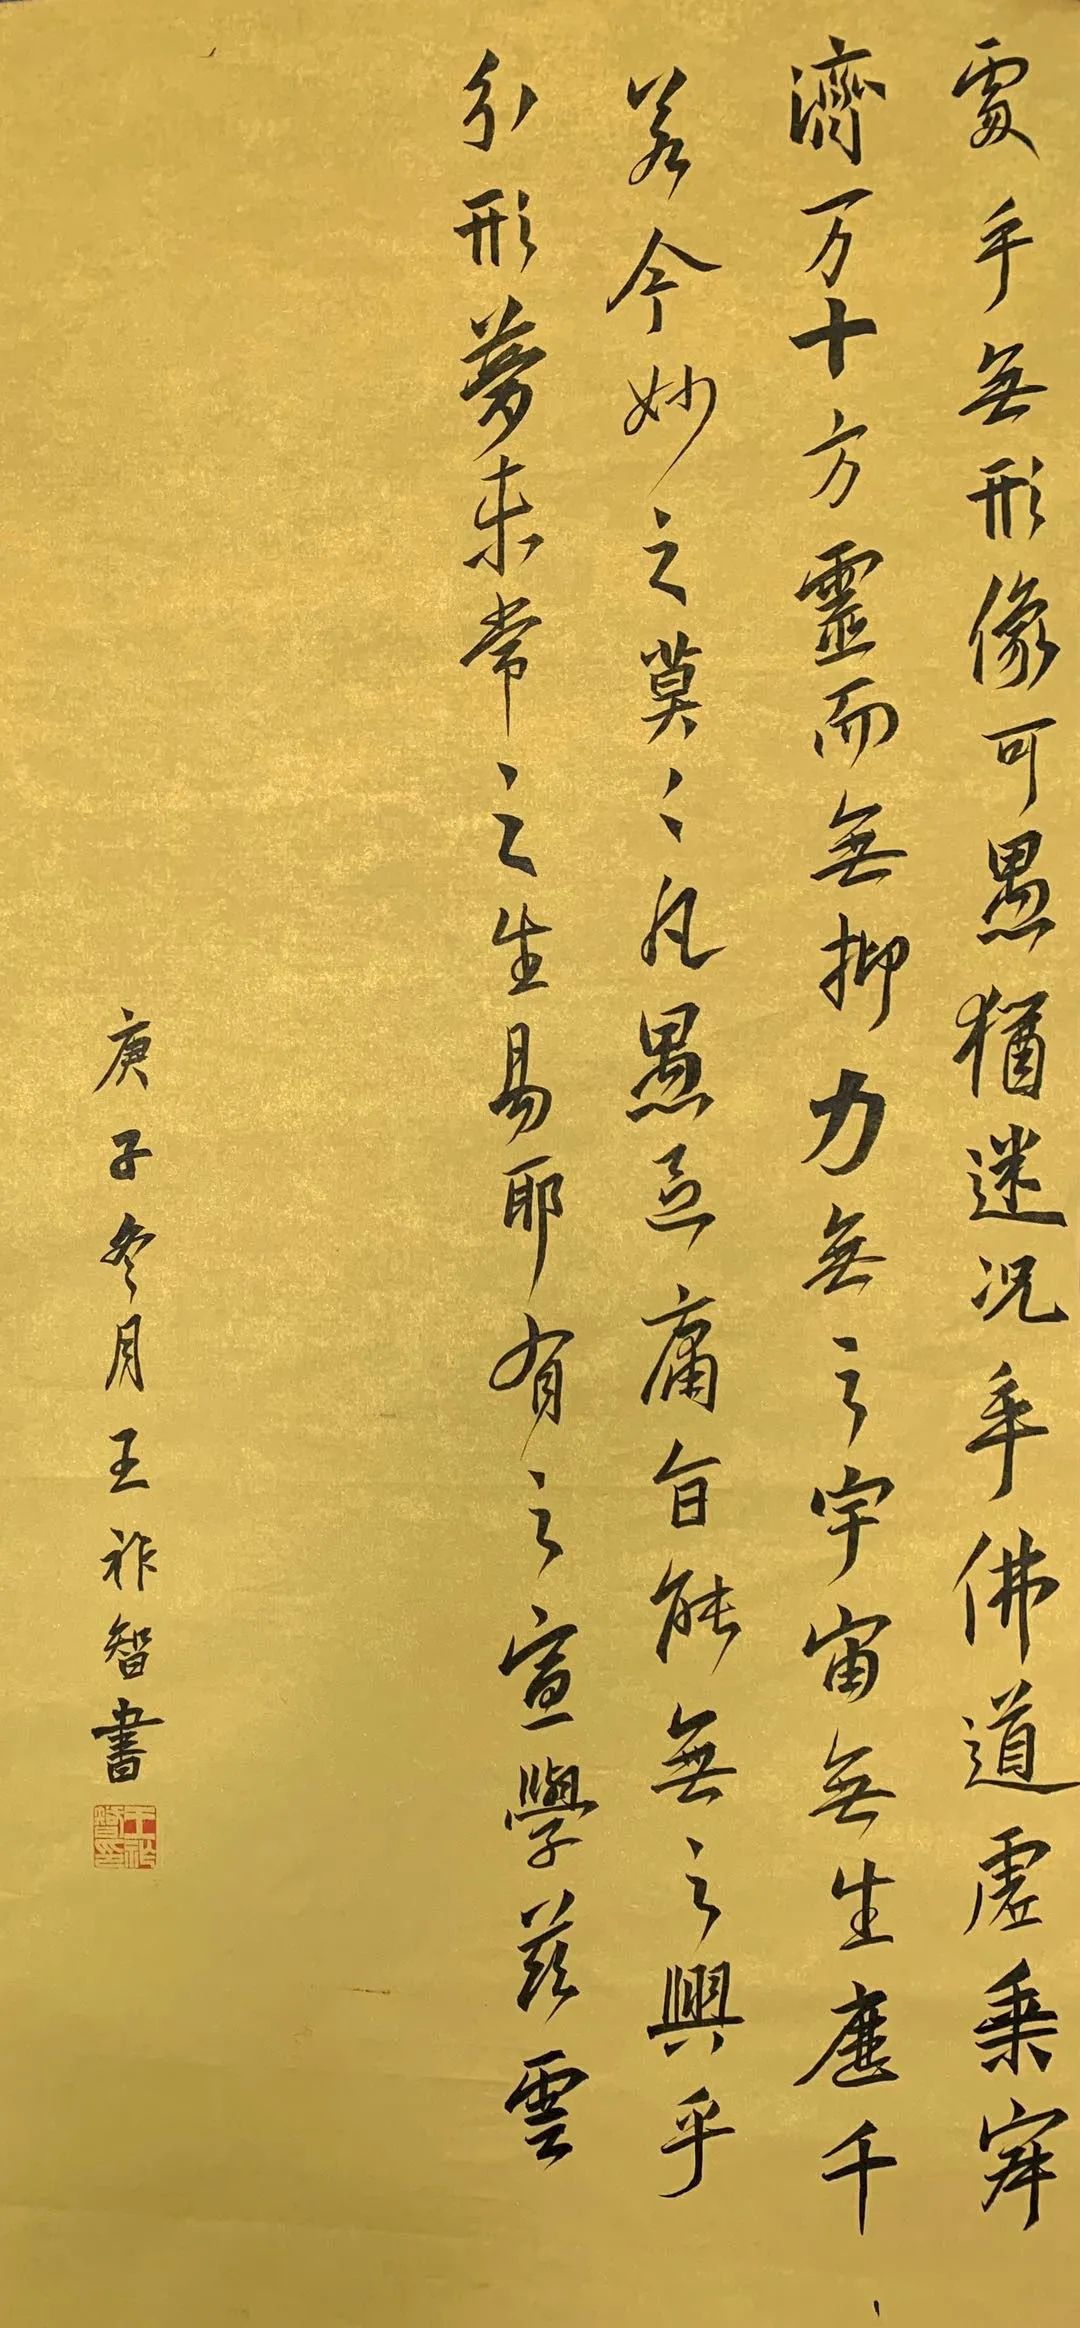 處乎無形像可愚猶迷況乎佛道虛乘宰
濟万十方靈而無抑力無之宇宙無生歷千
若今妙之莫〻凡愚區庸旨能無之興乎
分形夢未常之生易耶有之宣學茲雲
庚子冬月王祚智書